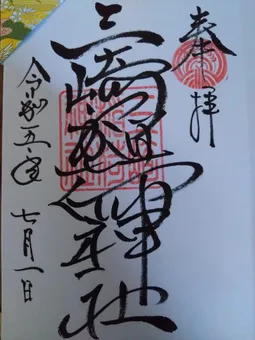 奉拝
三崎稲荷神社
令和五年
七月一日